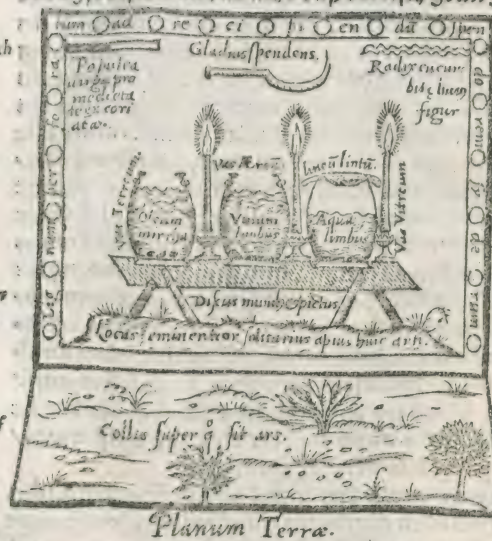 tum ad re ci bi en dū Spen
Gladius spendens.
Populea
uirga pro
medieta
te ex cori
atæ.
Radix cucur
bitę
figur
Vas Terreum
Vas Æreū
lineū lintū
Vas Vitreum
Oleum
mirrha
Vinum
limbus
Aqua
limbus
Discus mundus & pictus
Locus eminentior solitarius aptus huic arti.
Collis super q̊ sit ars.
Planum Terræ.